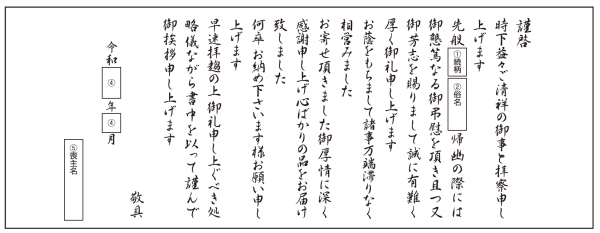 謹啓
時下益々ご清祥の御事と拝察申し
上げます
先般 ①続柄 ②俗名 帰幽の際には
御懇篤なる御弔慰を頂き且つ又
御芳志を賜りまして誠に有難く
厚く御礼申し上げます
お蔭をもちまして諸事万端滞りなく
相営みました
お寄せ頂きました御厚情に深く
感謝申し上げ心ばかりの品をお届け
致しました
何卒お納め下さいます様お願い申し
上げます
早速拝趨の上御礼申し上ぐべき処
略儀ながら書中を以って謹んで
御挨拶申し上げます
敬具
令和 ④ 年 ④ 月
⑤喪主名